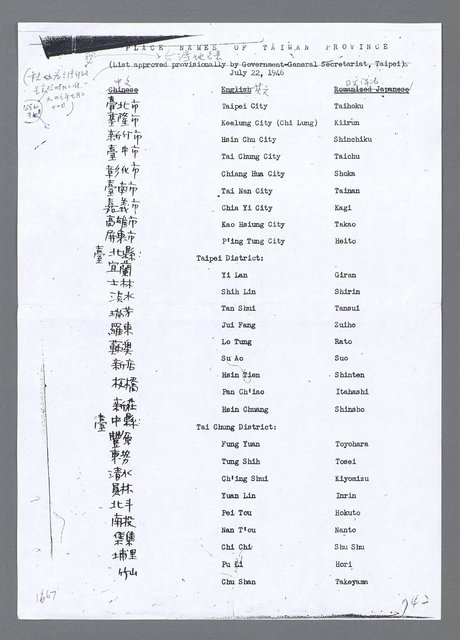 PLACE NAMES OF TAIWAN PROVINCE
台灣地名
(List approved provisionally by Government-General Secretariat, Taipei):
July 22, 1946
中文 英文
Chinese English Romanized Japanese
臺北市 Taipei City Taihoku
基隆市 Keelung City (Chi Lung) Kiirun
新竹市 Hsin Chu City Shinchiku
臺中市 Tai Chung City Taichu
彰化市 Chiang Hua City Shoka
臺南市 Tai Nan City Tainan
嘉義市 Chia Yi City Kagi
高雄市 Kao Hsiung City Takao
屏東市 P'ing Tung City Heito
臺北縣 Taipei District:
宜蘭 Yi Lan Giran
士林 Shih Lin Shirin
淡水 Tan Shui Tansui
瑞芳 Jui Fang Zuiho
羅東 Lo Tung Rato
蘇澳 Su Ao Suo
新店 Hsin Tien Shinten
板橋 Pan Ch'iao Itahashi
新莊 Hsin Chuang Shinsho
臺中縣 Tai Chung District:
豐原 Fung Yuan Toyohara
東勢 Tung Shih Tosei
清水 Ch'ing Shui Kiyomizu
員林 Yuan Lin Inrin
北斗 Pei Tou Hokuto
南投 Nan T'ou Nanto
集集 Chi Chi Shu Shu
埔里 Pu Li Hori
竹山 Chu Shan Takeyama
1667